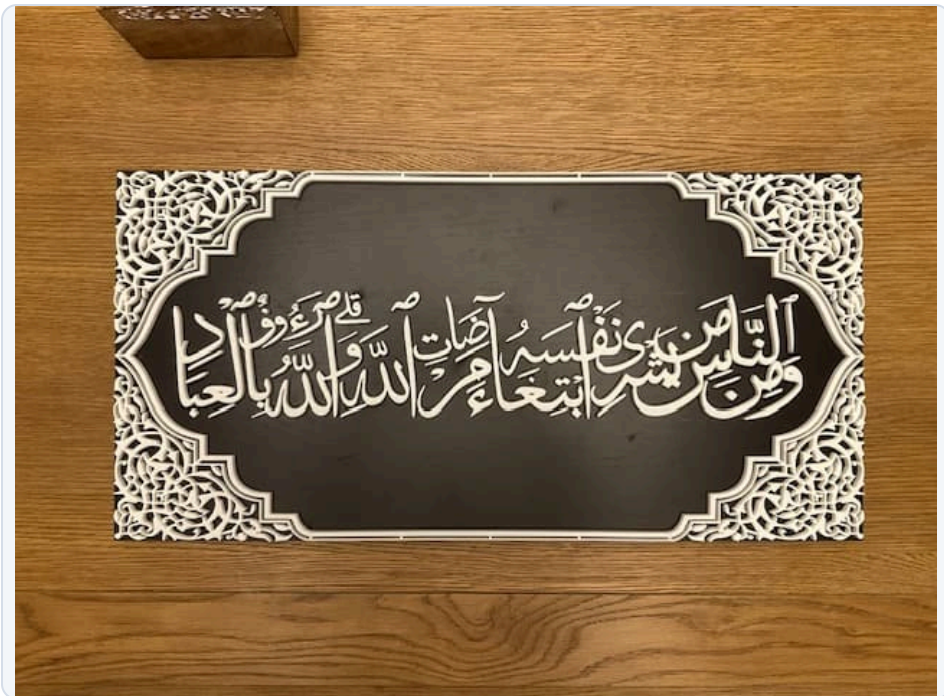 وَمِنَ ٱلنَّاسِ مَن يَشْرِى نَفْسَهُ ٱبْتِغَآءَ مَرْضَاتِ ٱللَّهِ ۗ وَٱللَّهُ رَءُوفٌۢ بِٱلْعِبَادِ